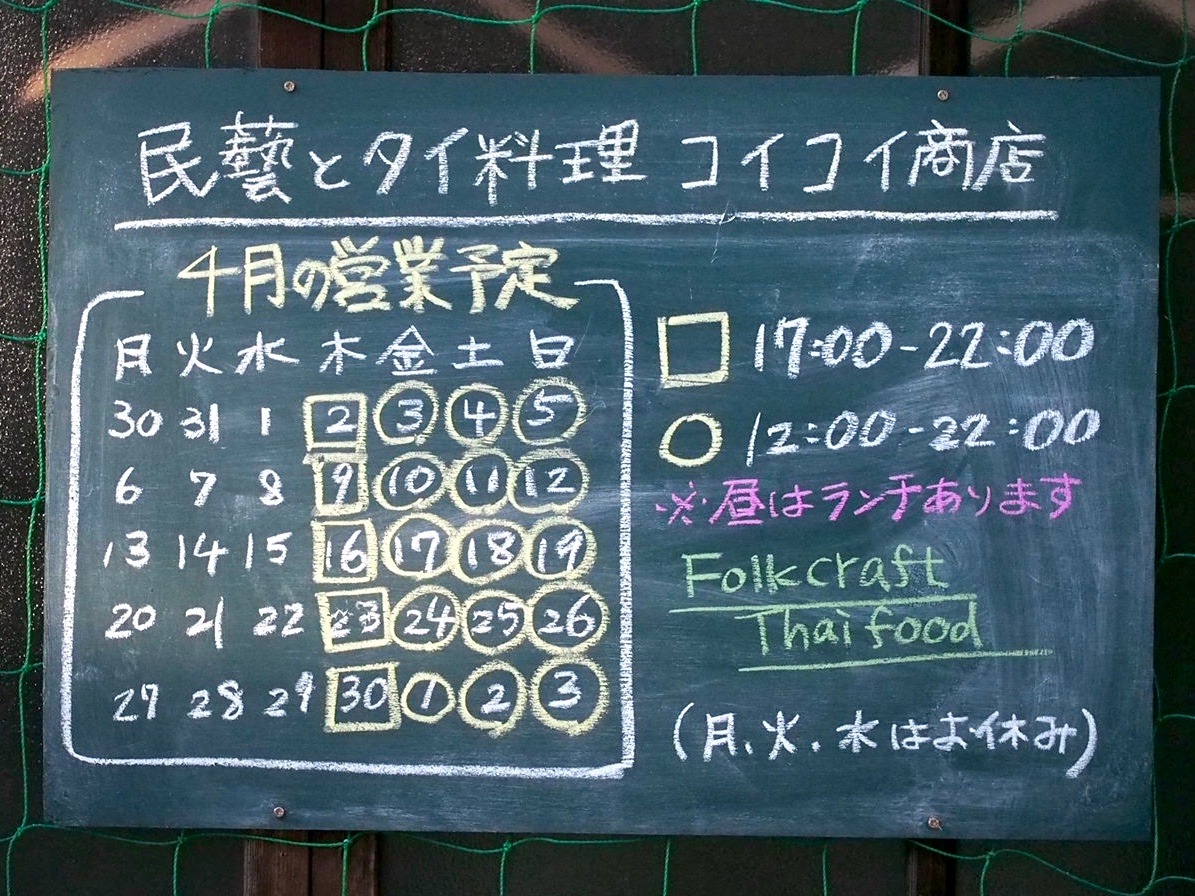 民藝とタイ料理 コイコイ商店
4月の営業予定
月 火 水 木 金 土 日
30 31 1 2 3 4 5
6 7 8 9 10 11 12
13 14 15 16 17 18 19
20 21 22 23 24 25 26
27 28 29 30 1 2 3
□ 17:00-22:00
○ 12:00-22:00
※昼はランチあります
Folkcraft
Thai food
(月、火、水はお休み)